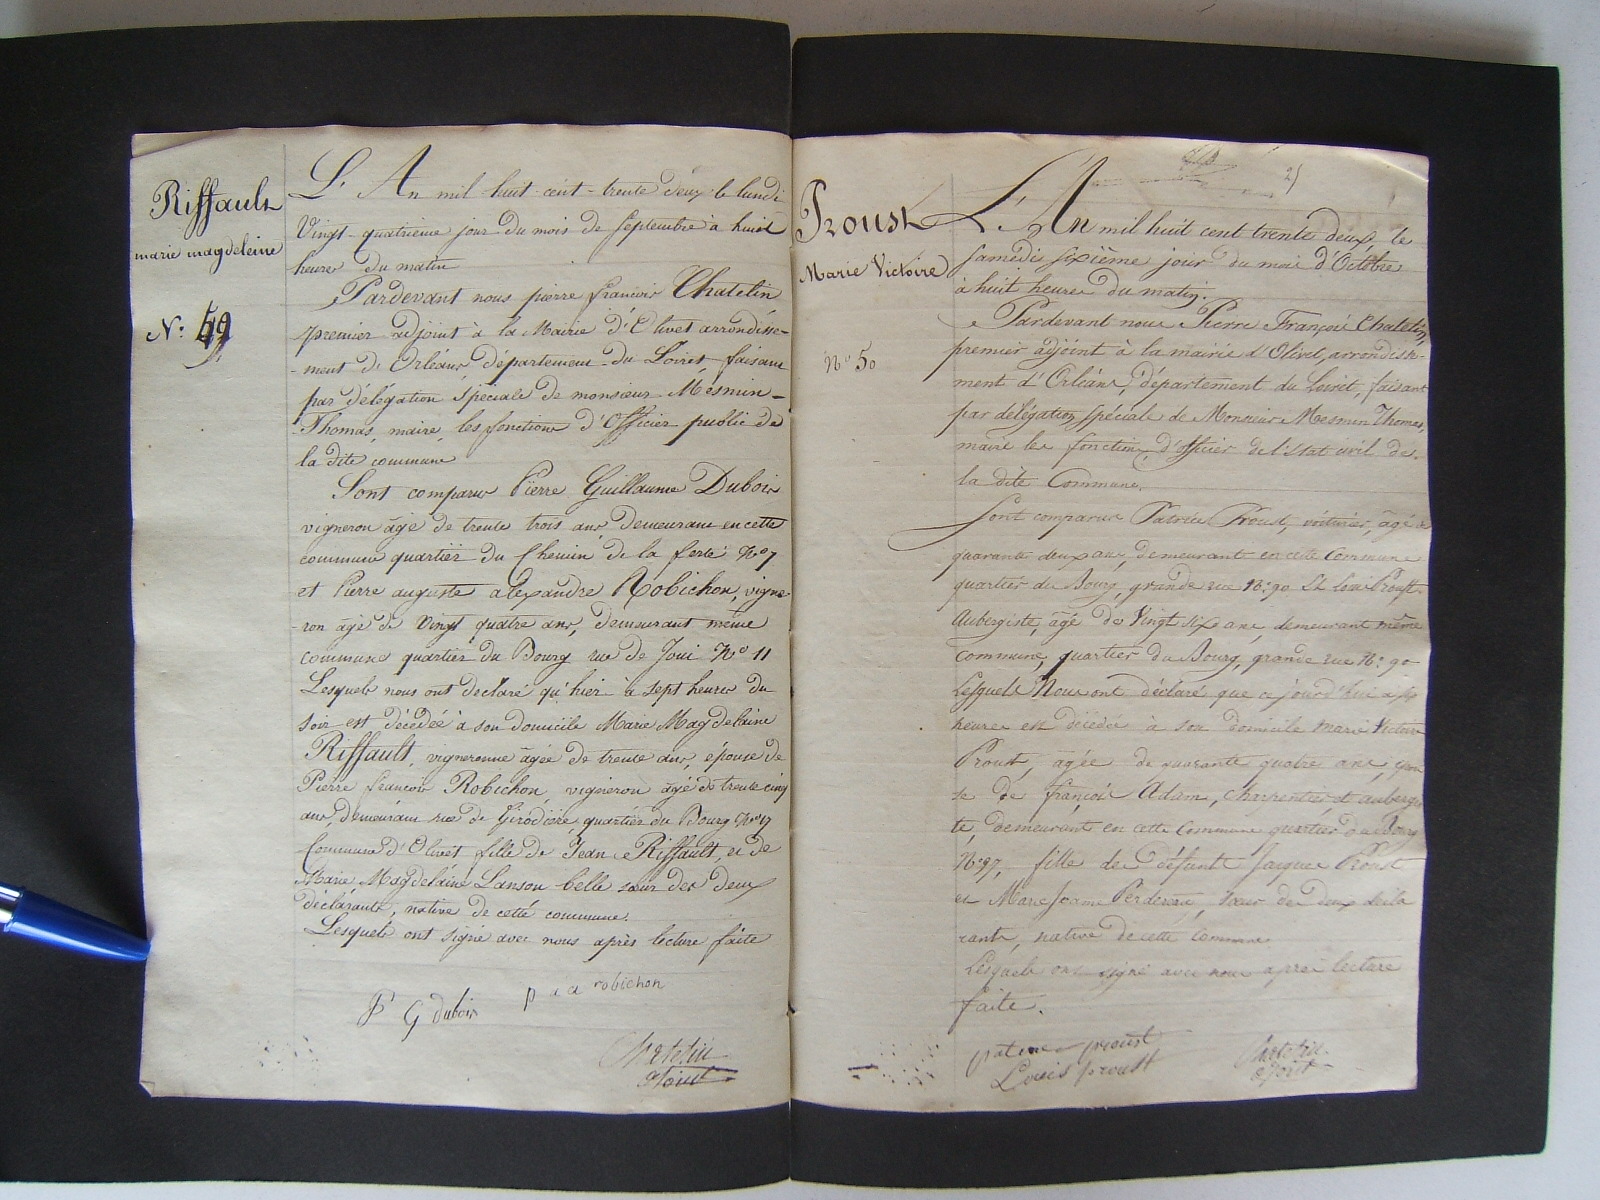 Riffault
marie magdeleine
N: 49
L'An mil huit cent trente deux le lundi
Vingt quatrieme jour du mois de Septembre à huit
heures du matin
Pardevant nous pierre francois Chatelin
premier adjoint à la Mairie d'Olivet arrondisse-
-ment de Orléans, département du Loiret faisant
par délégation spéciale de monsieur Mesmin-
Thomas, maire, les fonctions d'Officier public de
la dite commune
Sont comparus Pierre Guillaume Dubois
vigneron âgé de trente trois ans demeurant en cette
commune quartier du Chemin de la ferté N° 7
et Pierre auguste alexandre Robichon, vigne
-ron âgé de vingt quatre ans, demeurant même
commune quartier du Bourg rue de Joui N° 11
Lesquels nous ont declaré qu'hier à sept heures du
soir est décédée à son domicile Marie Magdelaine
Riffault, vigneronne âgée de trente ans, épouse de
Pierre francois Robichon, vigneron âgé de trente cinq
ans, demeurant rue de Girodière quartier du Bourg N° 17
Commune d'Olivet fille de Jean Riffault, et de
Marie Magdelaine Lanson belle sœur des deux
déclarants, native de cette commune.
Lesquels ont signé avec nous après lecture faite
P G dubois
p a a robichon
Chatelin
adjoint
21
Proust
Marie Victoire
N° 50
L'An mil huit cent trente deux, le
samedi sixième jour du mois d'Octobre
à huit heures du matin.
Pardevant nous Pierre François Chatelin,
premier adjoint à la mairie d'Olivet, arrondisse-
ment d'Orléans, département du Loiret, faisant
par délégation spéciale de Monsieur Mesmin Thomas,
maire les fonctions d'officier de l'état civil de
la dite Commune.
Sont comparus Patrice Proust, voiturier, âgé de
quarante deux ans, demeurant en cette Commune
quartier du Bourg, grande rue N° 90 Et Louis Proust
Aubergiste, âgé de Vingt six ans, demeurant même
commune, quartier du Bourg, grande rue N° 90
Lesquels Nous ont déclaré que ce jourd'hui à
heures est décédée à son domicile Marie Victoire
Proust, âgée de quarante quatre ans, épou
se de françois Adam, charpentier et aubergis
te, demeurant en cette Commune quartier du Bourg
N° 97, fille de défunts Jacques Proust
et Marie Jeanne, sœur des deux décla
rants, native de cette Commune.
Lesquels ont signé avec nous après lecture
faite.
patrice proust
Louis proust
Chatelin
adjoint